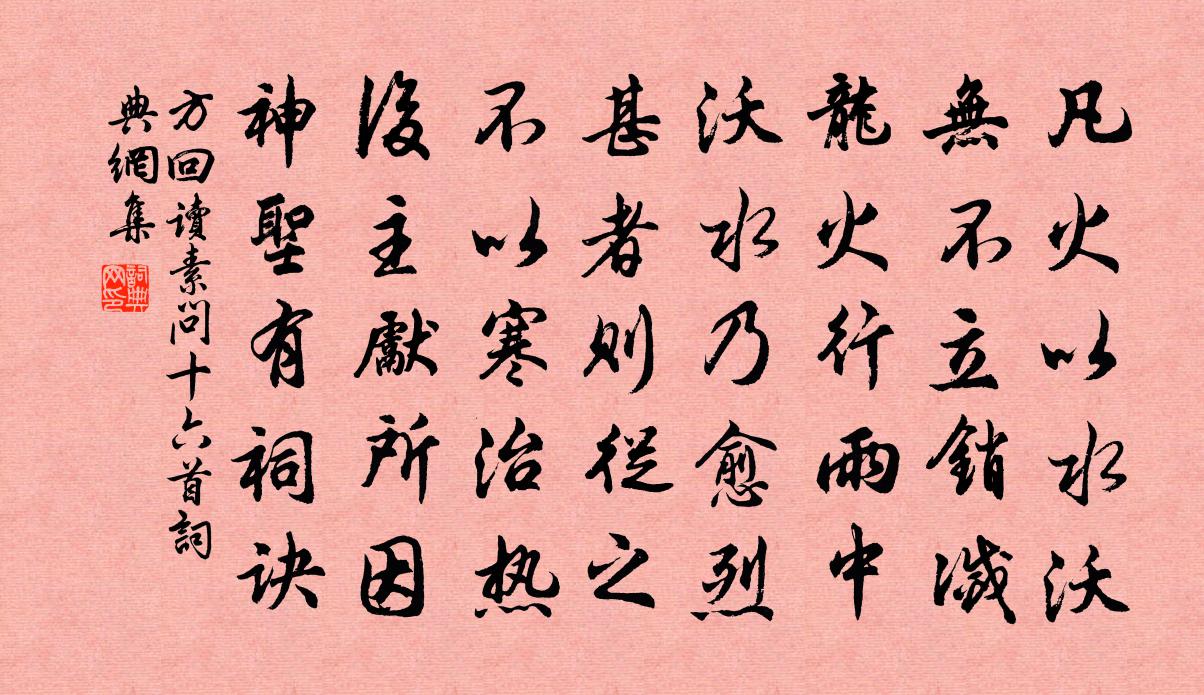 凡火以水沃
無不立銷滅
龍火行雨中
沃水乃愈烈
甚者則從之
不以寒治热
後主獻所因
神聖有祠訣
方回讀素問十六首詞
典網集
詞典
网印